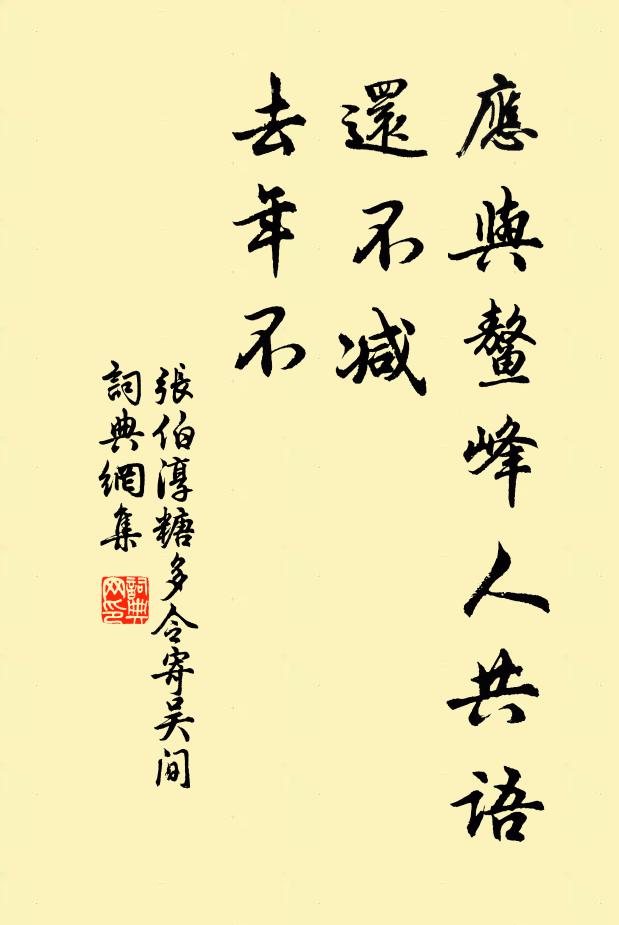 應與鰲峰人共語
還不減
去年不
張伯淳糖多令寄吴间
詞典網集
詞典
网印